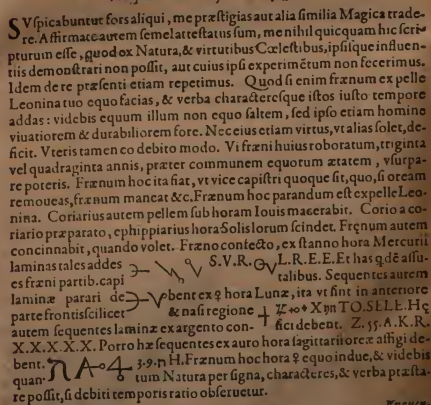 SVspicabuntur fors aliqui, me præstigias aut alia similia Magica trade-
re. Affirmate autem semel attestatus sum, me nihil quicquam hic scri-
pturum esse, quod ex Natura, & virtutibus Cælestibus, ipsisque influen-
tiis demonstrari non possit, aut cuius ipsi experimẽtum non fecerimus.
Idem de re præsenti etiam repetimus. Quod si enim frænum ex pelle
Leonina tuo equo facias, & verba characteresque istos iusto tempore
addas: videbis equum illum non equo saltem, sed ipso etiam homine
viuatiorem & durabiliorem fore. Nec eius etiam virtus, vt alias solet, de-
ficit. Vteris tamen eo debito modo. Vi fræni huius roboratum, triginta
vel quadraginta annis, præter communem equorum ætatem, vsurpa-
re poteris. Frænum hoc ita fiat, vt vice capistri quoque sit, quo, si oream
remoueas, frænum mancat &c. Frænum hoc parandum est ex pelle Leo-
nina. Coriarius autem pellem sub horam Iouis macerabit. Corio a co-
riario præparato, ephippiarius hora Solis lorum scindet. Fręnum autem
concinnabit, quando volet. Fræno contecto, ex stanno hora Mercurii
laminas tales addes S.V.R. L.R.E.E. Et has q̃dẽ assu-
es fræni partib. capi talibus. Sequentes autem
laminæ parari de bent ex ♀ hora Lunæ, ita vt sint in anteriore
parte frontis scilicet & nasi regione TO.SELE. Hę
autem sequentes laminæ ex argento con- fici debent. Z. 55. A.K.R.
X.X.X.X.X. Porro hæ sequentes ex auro hora sagittarii ore affigi de-
bent. 3.9.n H. Frænum hoc hora ♀ equo indue, & videbis
quan- tum Natura per signa, characteres, & verba præsta-
re possit, si debiti temporis ratio obseruetur.